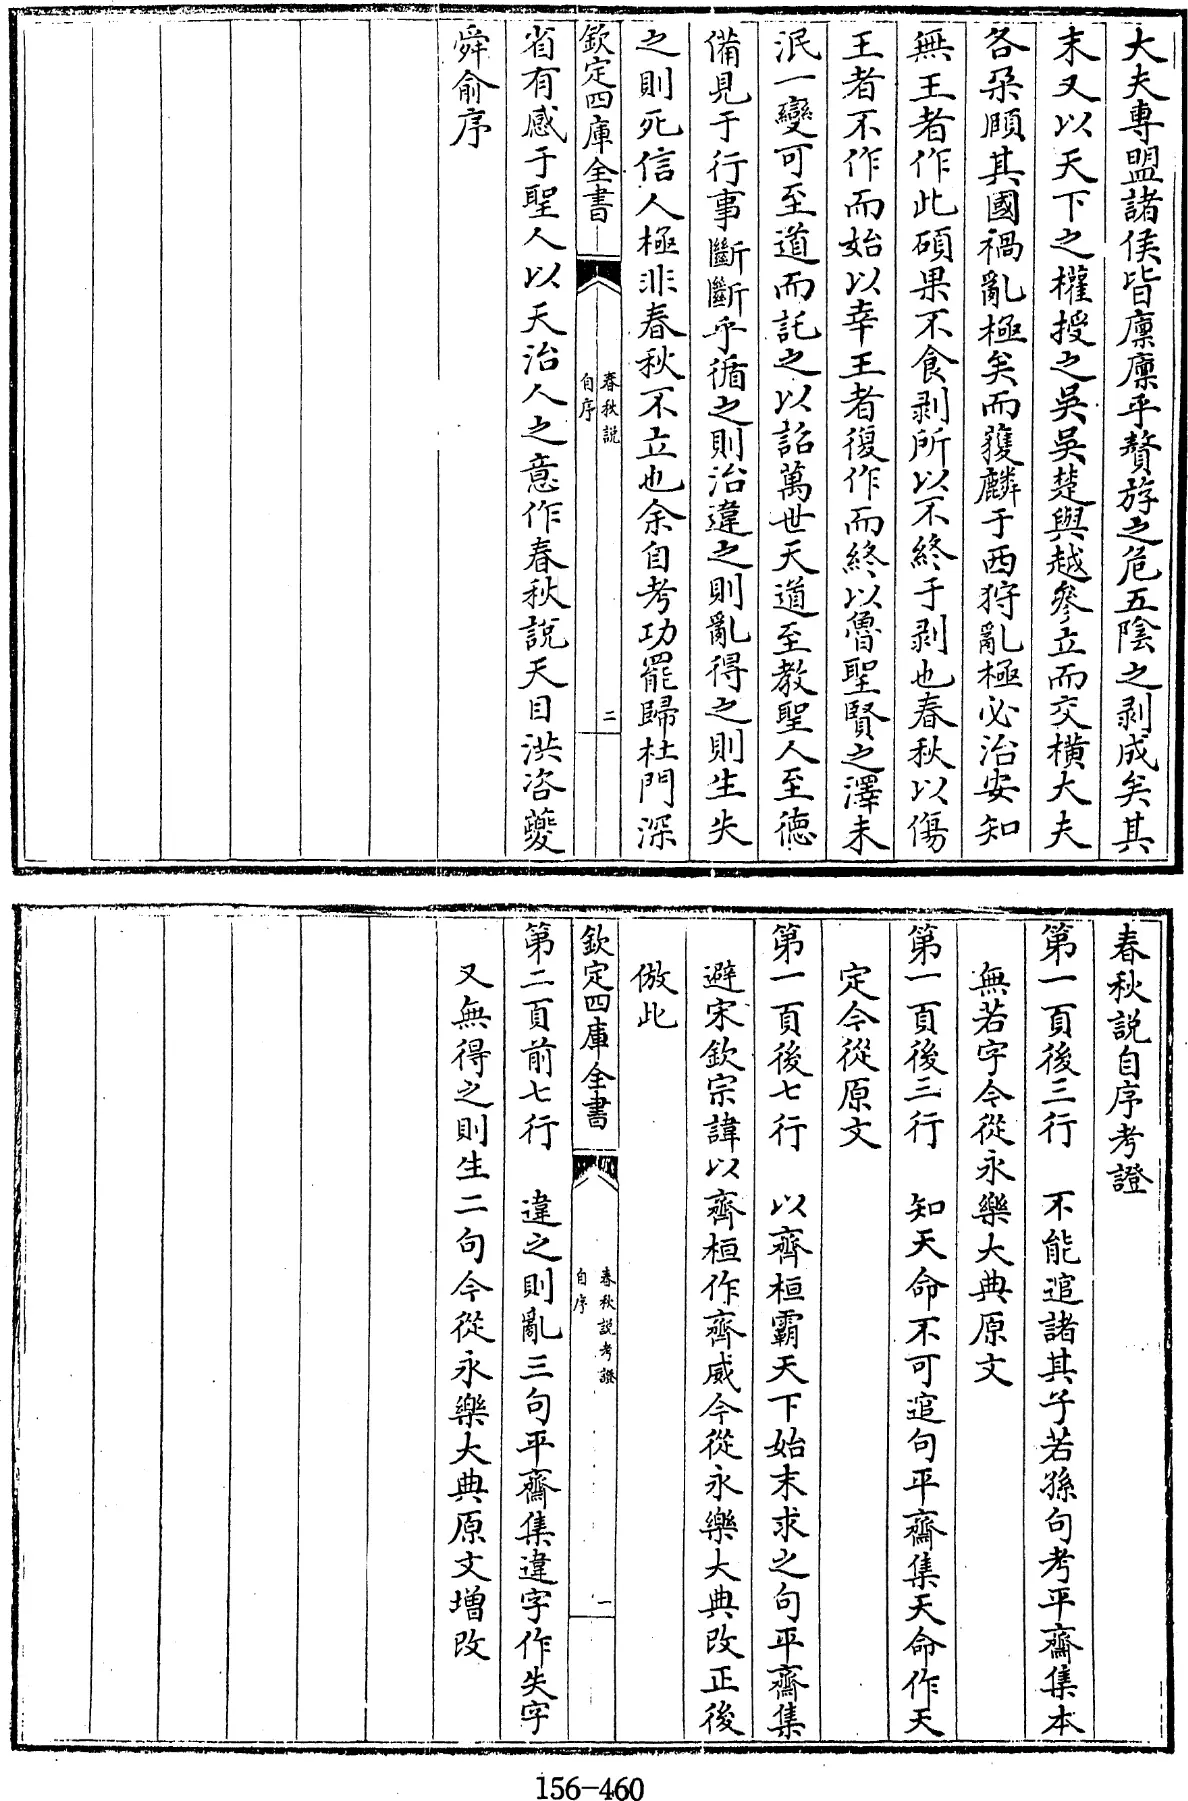 大夫專盟諸侯皆廩廩乎贅斿之危五陰之剥成矣其
末又以天下之權授之吳吳楚與越叅立而交橫大夫
各朶頤其國禍亂極矣而獲麟于西狩亂極必治安知
無王者作此碩果不食剥所以不終于剥也春秋以傷
王者不作而始以幸王者復作而終以魯聖賢之澤未
泯一變可至道而託之以詔萬世天道至教聖人至徳
備見于行事斷斷乎循之則治違之則亂得之則生失
之則死信人極非春秋不立也余自考功罷歸杜門深
欽定四庫全書
春秋説
自序
二
省有感于聖人以天治人之意作春秋説天目洪咨夔
舜俞序
春秋説自序考證
第一頁後三行 不能逭諸其子若孫句考平齋集本
無若字今從永樂大典原文
第一頁後三行 知天命不可逭句平齋集天命作天
定今從原文
第一頁後七行 以齊桓霸天下始末求之句平齋集
避宋欽宗諱以齊桓作齊威今從永樂大典改正後
倣此
欽定四庫全書
春秋説考證
自序
一
第二頁前七行 違之則亂三句平齋集違字作失字
又無得之則生二句今從永樂大典原文增改
156-460